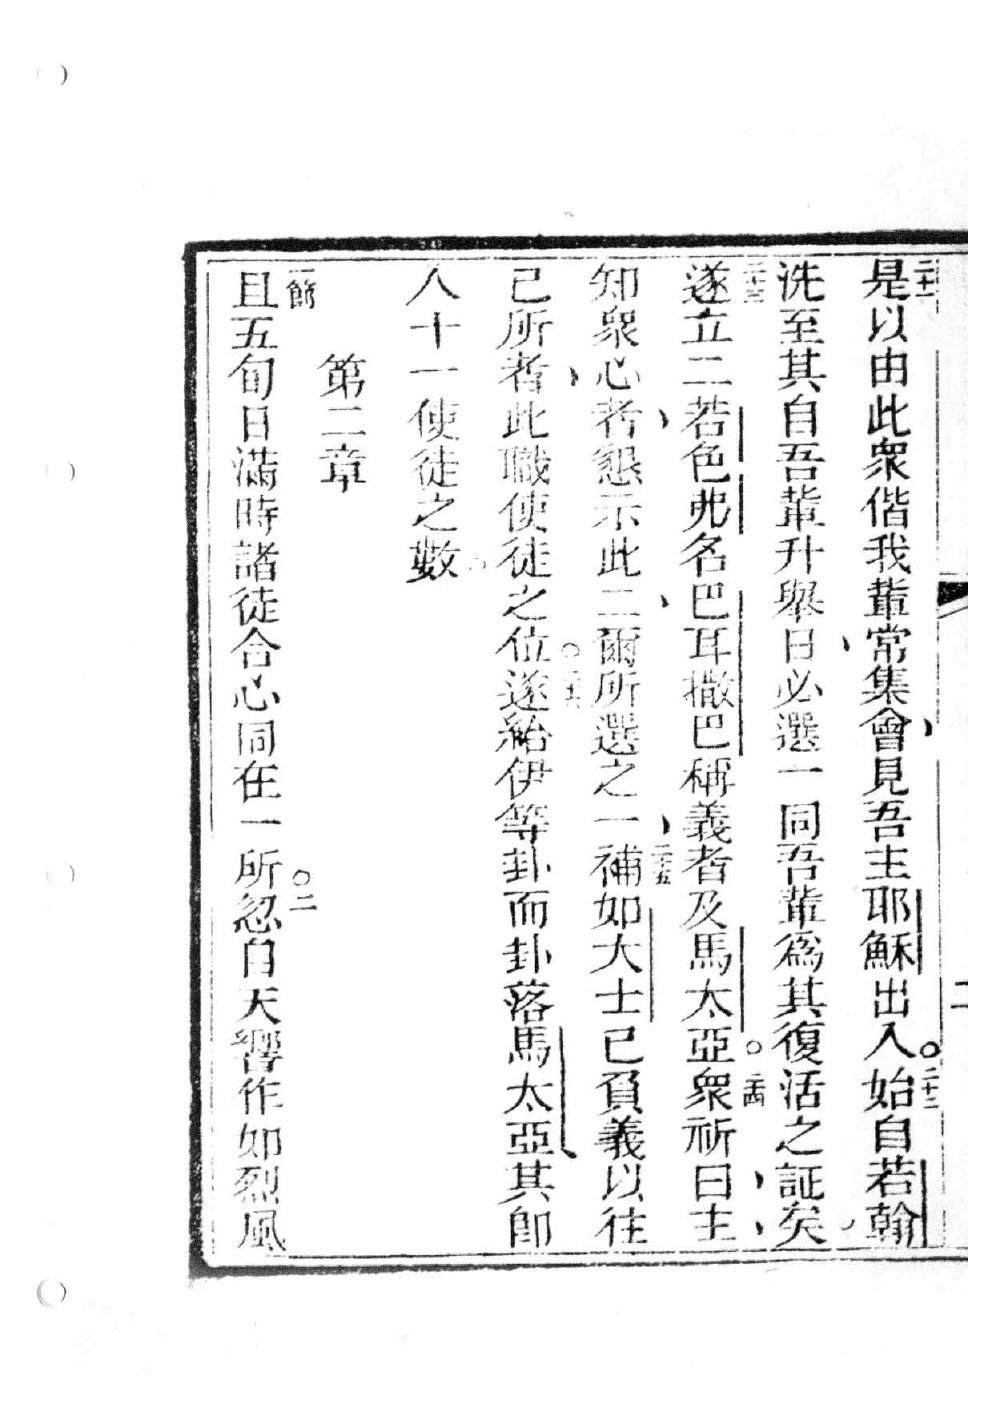 二十一是以由此衆偕我輩常集會見吾主耶穌出入。二十二始自若翰
洗至其自吾輩升舉日必選一同吾輩爲其復活之証矣
二十三遂立二若色弗名巴耳撒巴稱義者及馬太亞。二十四衆祈曰主
知衆心者懇示此二爾所選之一二十五補如大士已負義以往
己所者此職使徒之位。二十六遂紿伊等卦而卦落馬太亞其卽
入十一使徒之數。
第二章
一節且五旬日滿時諸徒合心同在一所。二忽自天響作如烈風
二